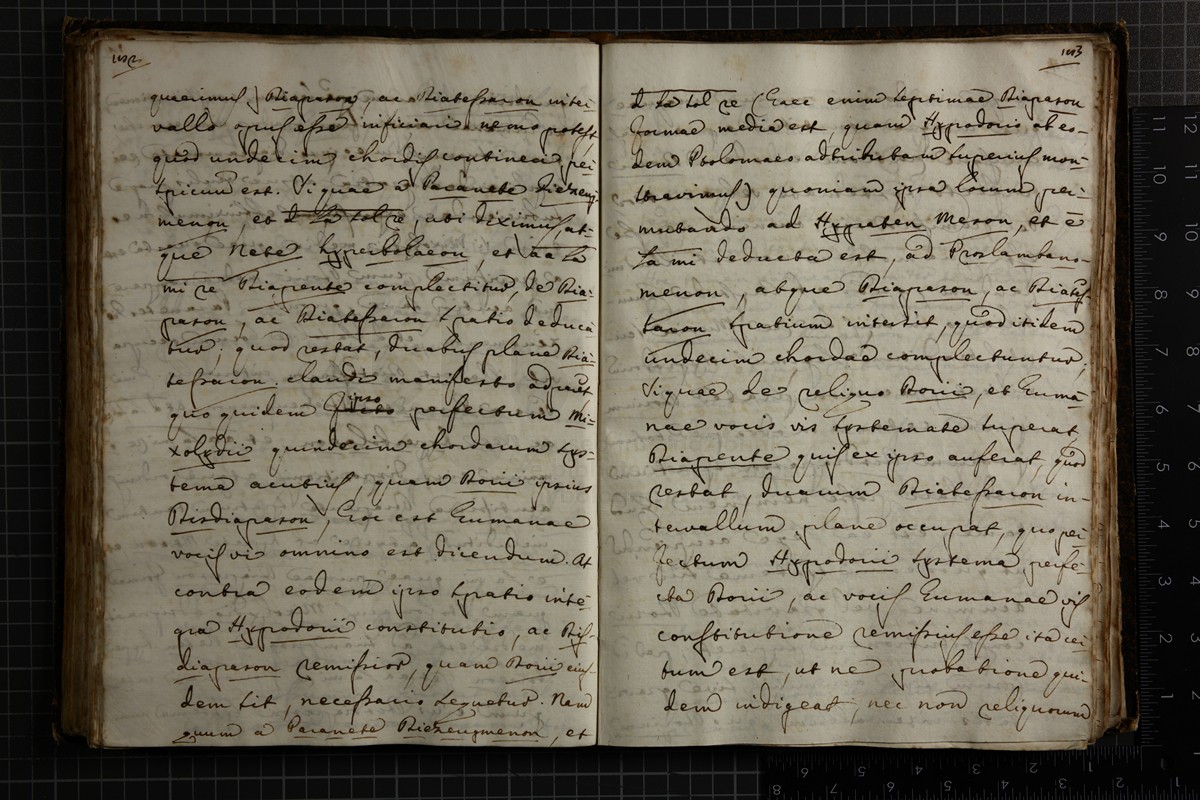 quaerimus) Diapason, ac Diatessaron inter
vallo opus esse inficiari nemo potest,
quod undecim chordis contineri per
spicuum est. Si quae a Paranete Diezeug-
menon, et d la sol re, ubi diximus, at-
que Nete hyperbolaeon, et aa la
mi re Diapente complectitur, de Dia-
pason, ac Diatessaron spatio deduca
tur; quod restat, duabus plane Dia-
tessaron claudi manifesto
quo quidem ipso perfectum Mi-
xolydii quindecim chordarum sys-
tema acutius, quam Dorii ipsius
Bisdiapason, hoc est humanae
vocis vi omnino est dicendum. At
contra eodem ipso spatio inte-
gra Hypodorii constitutio, ac Bis-
diapason remissior, quam Dorii eius-
dem sit, necessario sequetur. Nam
quum a Paranete Diezeugmenon, et
1103
d la sol re (haec enim septimae Diapason
formae media est, quam Hypodorio ab eo-
dem Ptolomaeo adtributam superius mon-
stravimus) quoniam ipsa locum, per-
mutando ad Hypaten Meson, et e
la mi deducta est, ad Proslambano-
menon, absque Diapason, ac Diates
saron spatium intersit, quod itidem
undecim chordae complectuntur,
Si quae de reliquo Dorii, et huma-
nae vocis vis systemate superat
Diapente quis ex ipso auferat, quod
restat, duarum Diatessaron in-
tervallum plane occupat, quo per
fectum Hypodorii systema perfe-
cta Dorii, ac vocis humanae vis
constitutione remissius esse ita cer
tum est, ut ne probatione qui-
dem indigeat, nec non reliquorum